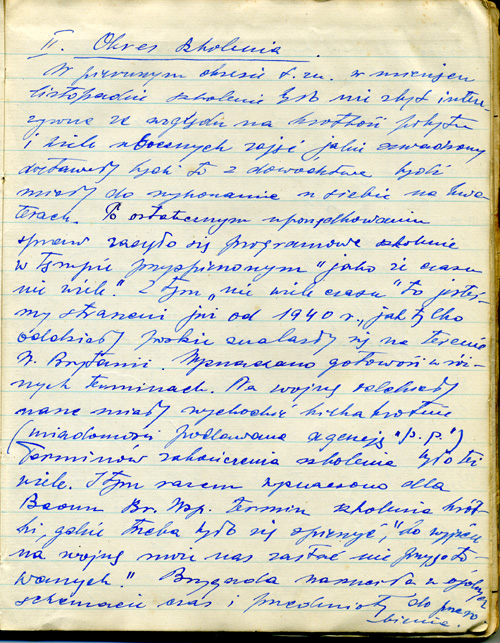 II. Okres szkolenia.
W pierwszym okresie t.zn. w miesiącu
listopadzie szkolenie było nie zbyt inten-
zywne ze względu na krótkość pobytu
i wiele ubocznych zajęć jakie oddziały
dostawały bądź to z dowództwa bądź
miały do wykonania u siebie na kwa-
terach. Po ostatecznym uporządkowaniu
spraw zaczęło się programowe szkolenie
w tempie przyspieszonym "jako że czasu
nie wiele." Z tym "nie wiele czasu" to jesteś-
my straszeni już od 1940 r., jak tylko
oddziały polskie znalazły się na terenie
W. Brytanii. Wyznaczano gotowość w róż-
nych terminach. Na wojnę oddziały
nasze miały wychodzić kilkakrotnie
(wiadomości podawane agencją "p.p.")
Terminów zakończenia szkolenia było też
wiele. I tym razem wyznaczono dla
Baonu Br. Wsp. termin szkolenia krót-
ki, gdzie trzeba było się spieszyć, "bo wyjście
na wojnę może nas zastać nie przygoto-
wanych." Brygada nakreśliła w ogólnym
schemacie czas i przedmioty do przero-
bienia.